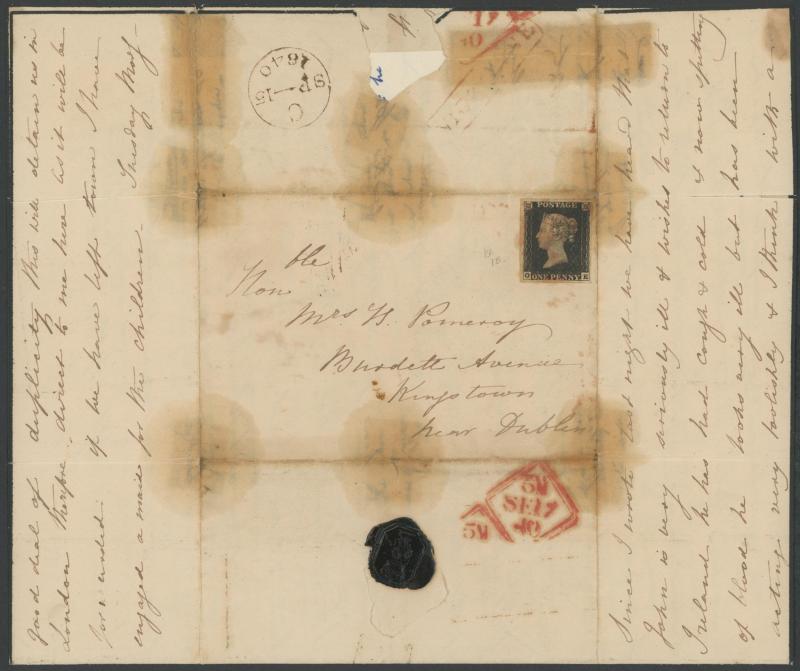 good deal of duplicity this will detain us in
London therefore direct to me here as it will be
forwarded if we have left town I have
engaged a maid for the children - Tuesday Morg
C
SP 15
1840
he
17
40
POSTAGE
ONE PENNY
Honble
Mrs H. Pomeroy
Burdett Avenue
Kingstown
near Dublin
5N
SE 17
40
5N
Since I wrote last night we have heard that
John is very seriously ill & wishes to return to
Ireland he has had cough & cold & now spitting
of blood he looks very ill but has been
acting very foolishly & I think with a